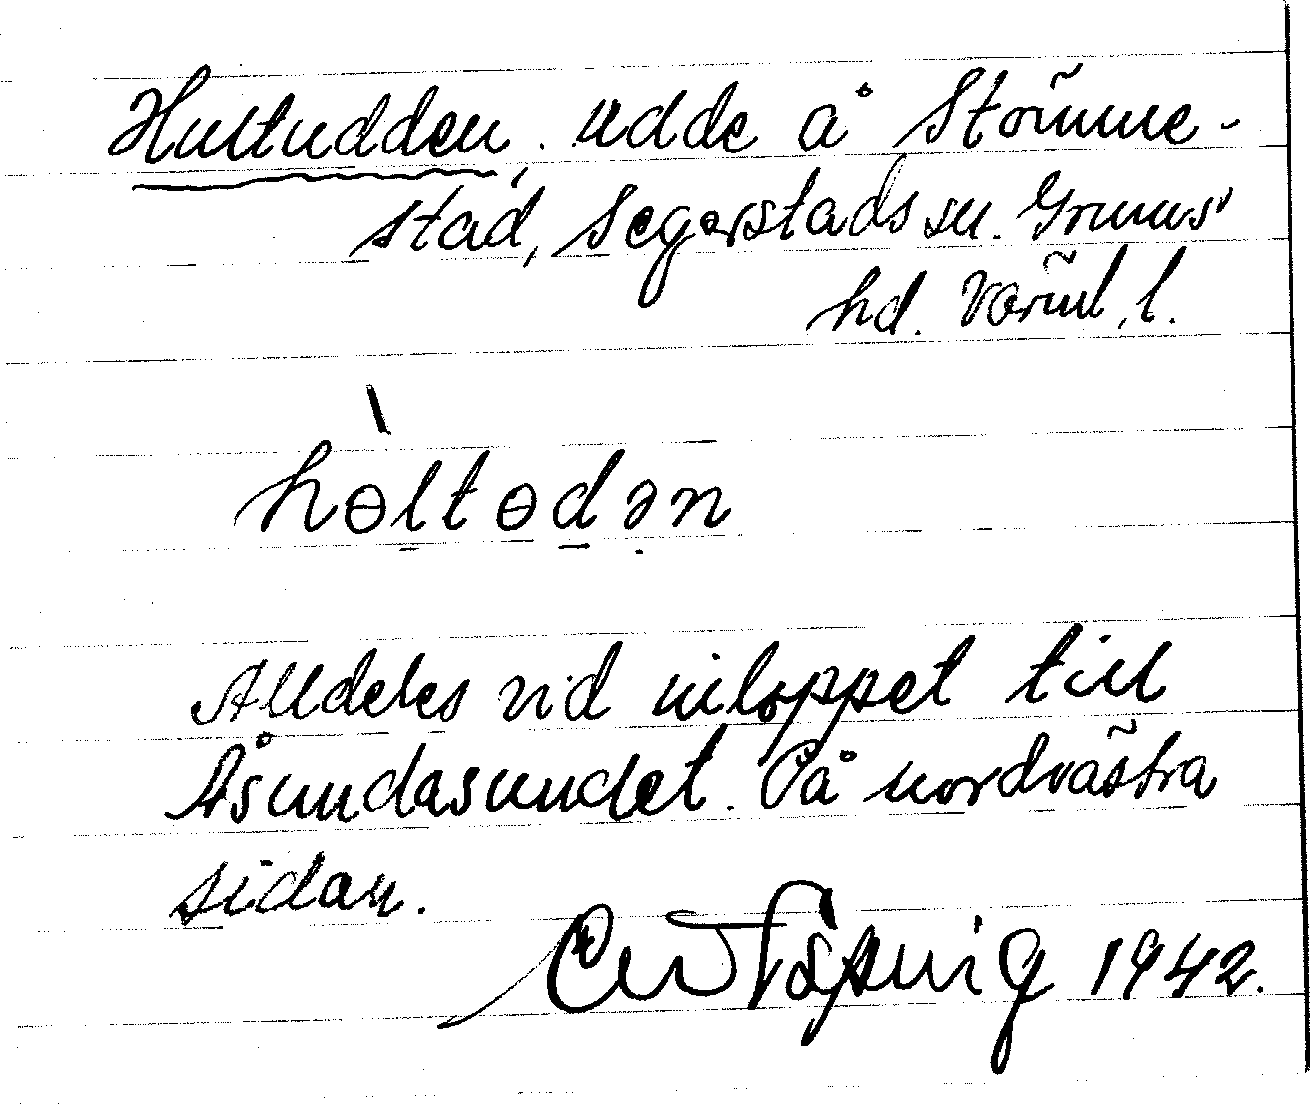 Hultudden, udde å Stömne-
stad, Segerstads sn. Grums'
hd. Värml. l.
hɵ̀ltɵdən
Alldeles vid inloppet till
Åsundasundet. På nordvästra
sidan.
1942.